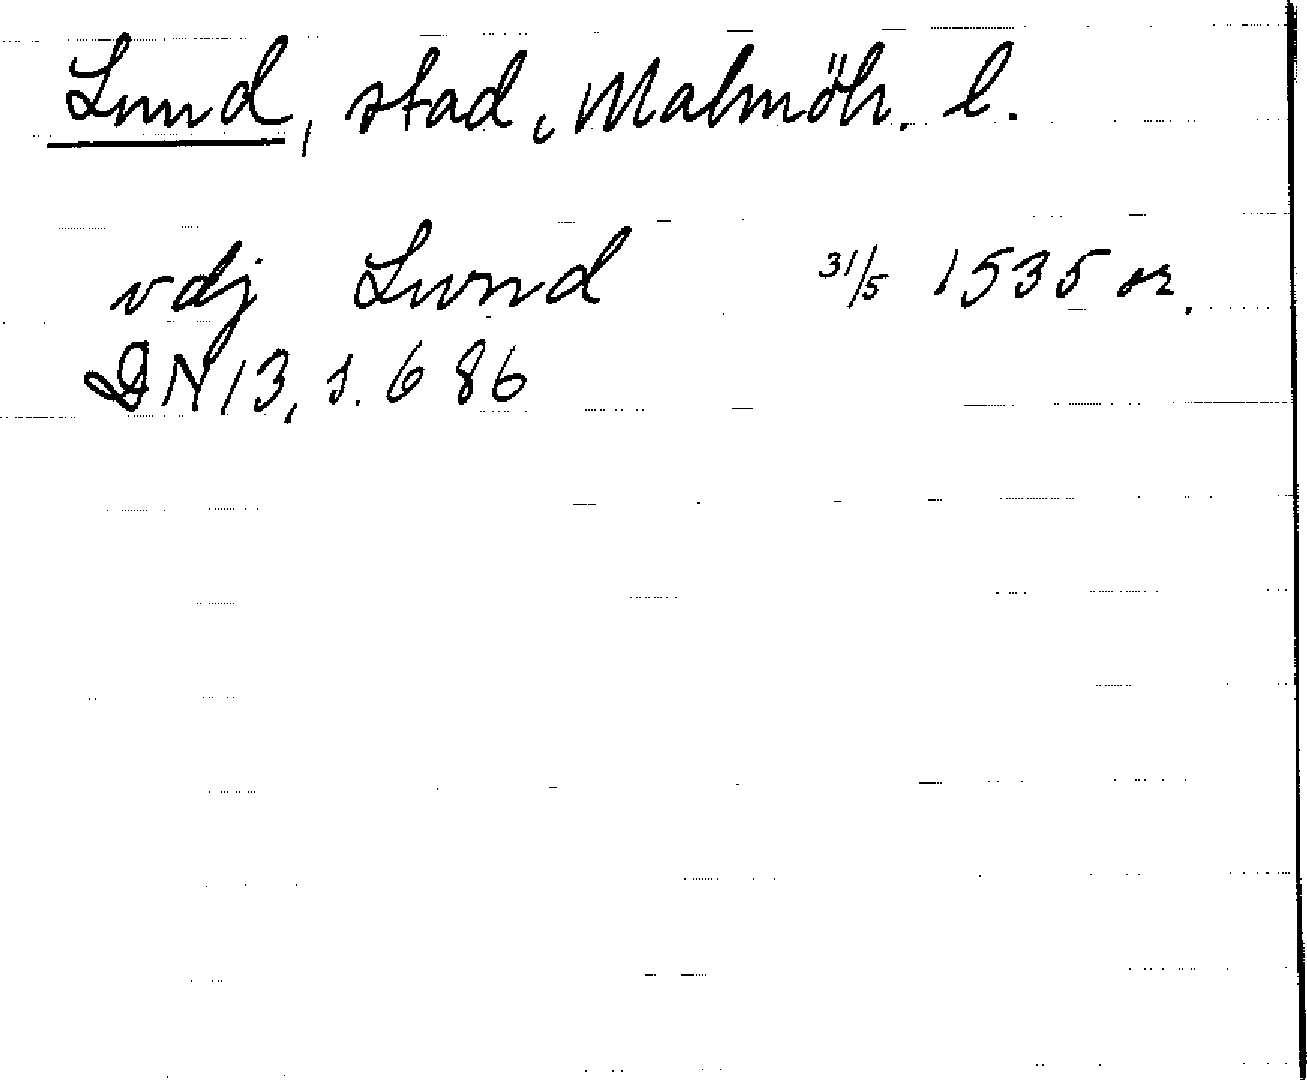 Lund, stad, Malmöh. l.
vdj Lund 31/5 1535 or.
DN 13, s. 686